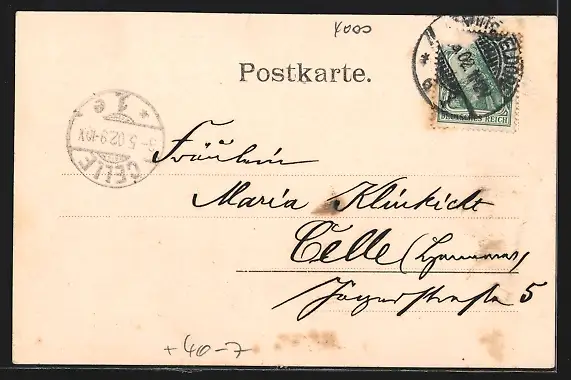 4000
Postkarte.
DEUTSCHES REICH
CELLE
* 1e
5.02.9-10V
Fräulein
Maria Klinkicht
Celle (Hannover)
Jägerstraße 5
+40-7